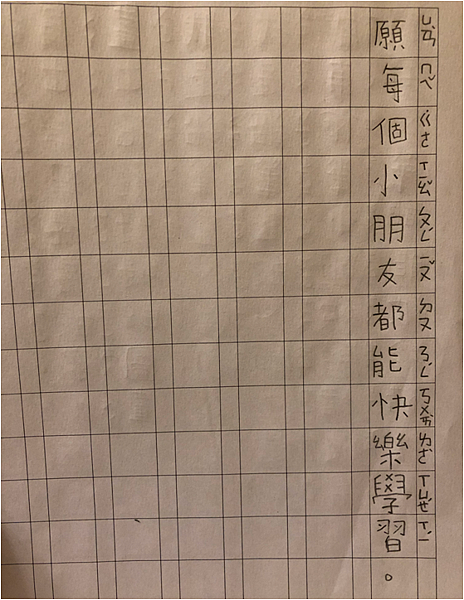 願每個小朋友都能快樂學習。
ㄩㄢˋ ㄇㄟˇ ㄍㄜˋ ㄒㄧㄠˇ ㄆㄥˊ ㄧㄡˇ ㄉㄡ ㄋㄥˊ ㄎㄨㄞˋ ㄌㄜˋ ㄒㄩㄝˊ ㄒㄧˊ